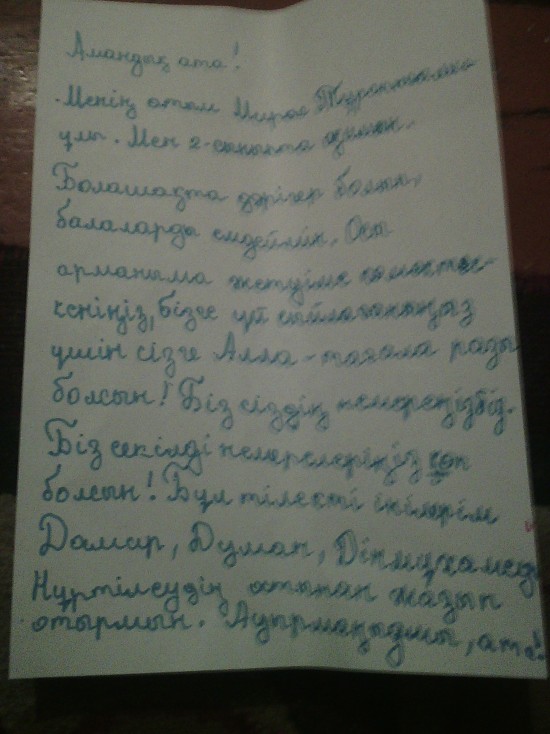 Амандық ата!
Менің атым Мирас
ұлы. Мен 2-сыныпта оқимын.
Болашақта дәрігер болып,
балаларды емдеймін. Осы
арманыма жетуіме көмектес-
кеніңіз, бізге үй сыйлағаныңыз
үшін сізге Алла-тағала разы
болсын! Біз сіздің немереңізбіз.
Біз секілді немерелеріңіз көп
болсын! Бұл тілекті інілерім
Дамир, Думан, Дінмұхамед,
Нұртілеудің атынан жазып
отырмын. Ауырмаңызшы, ата!